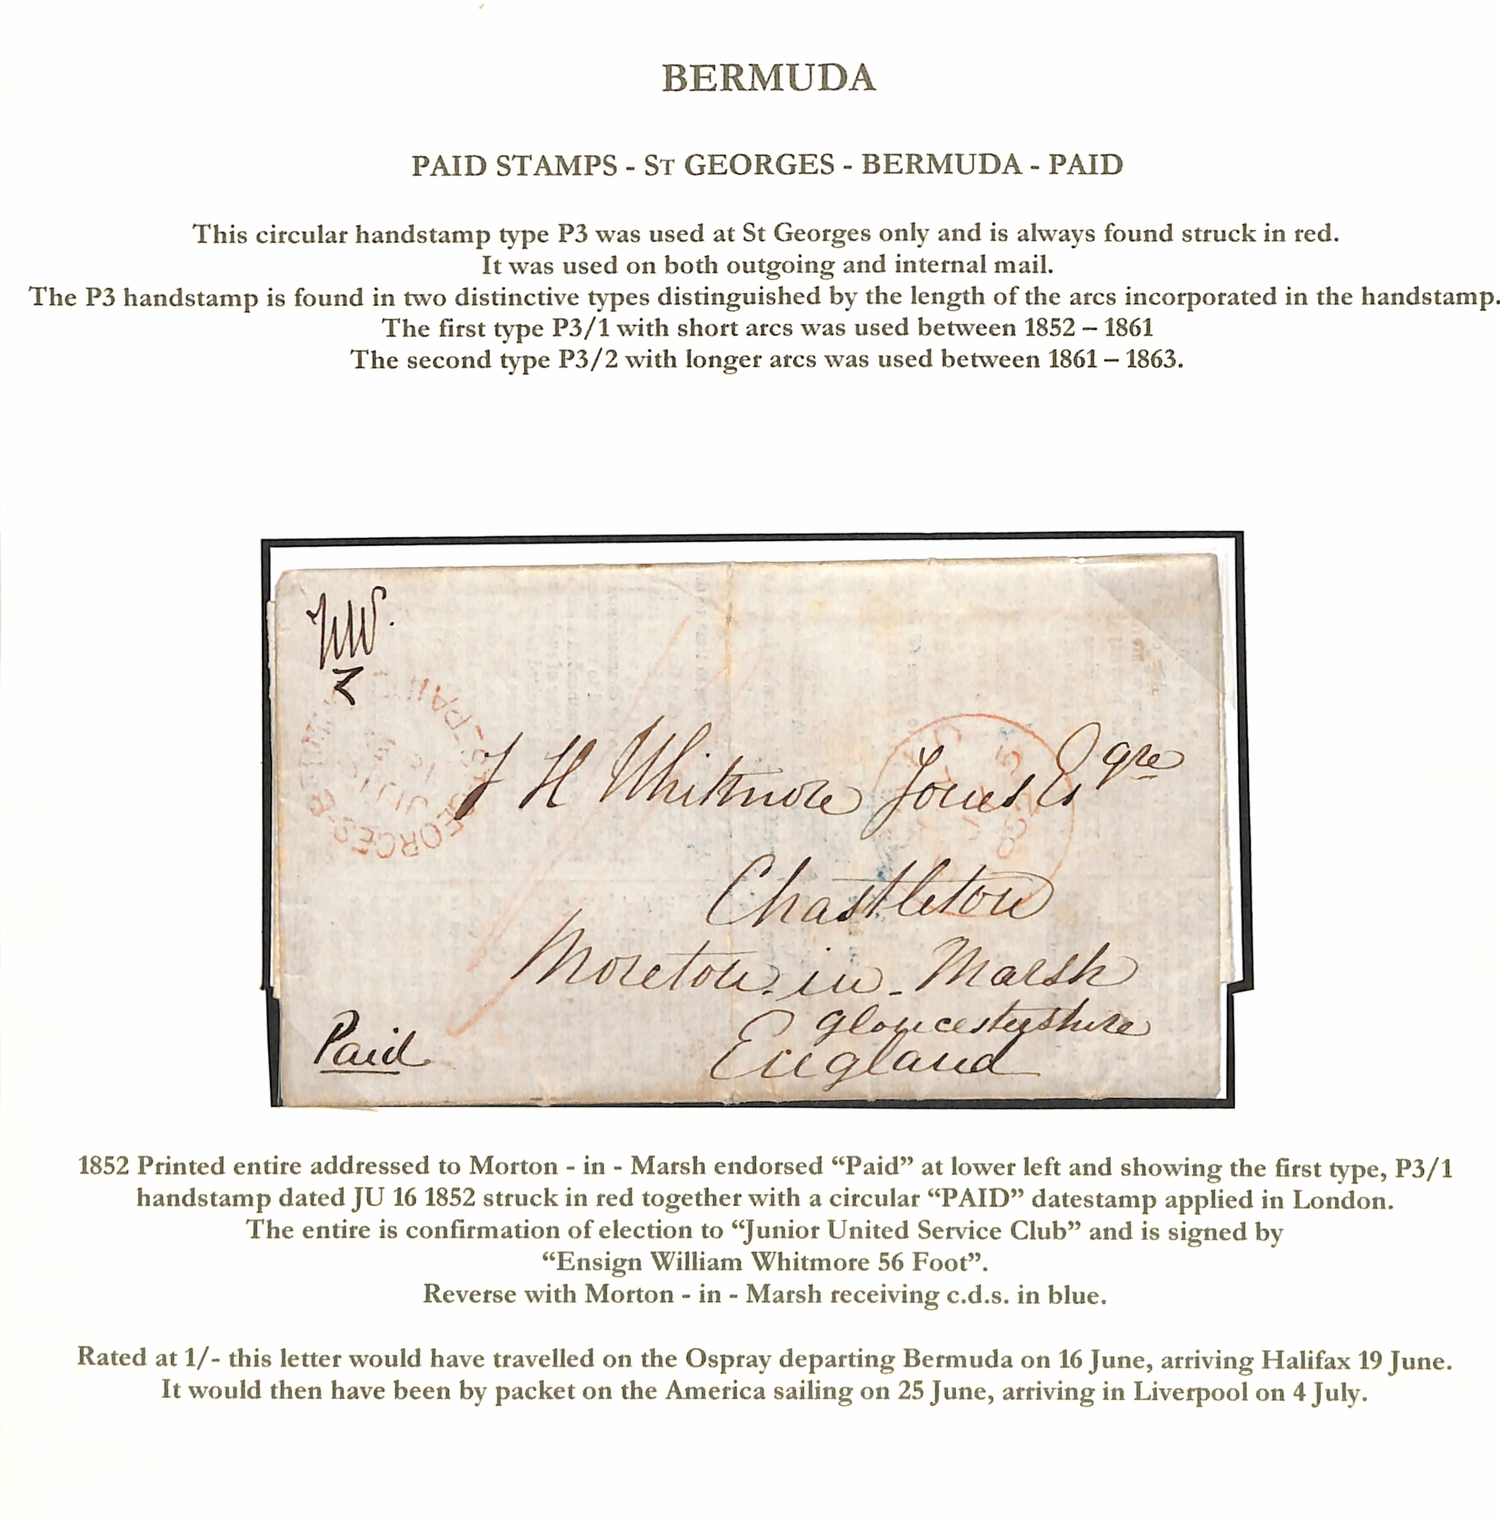 BERMUDA
PAID STAMPS - ST GEORGES - BERMUDA - PAID
This circular handstamp type P3 was used at St Georges only and is always found struck in red.
It was used on both outgoing and internal mail.
The P3 handstamp is found in two distinctive types distinguished by the length of the arcs incorporated in the handstamp.
The first type P3/1 with short arcs was used between 1852 – 1861
The second type P3/2 with longer arcs was used between 1861 – 1863.
J H Whitmore Jones Esqre
Chastleton
Moreton-in-Marsh
Gloucestershire
England
Paid
1852 Printed entire addressed to Morton - in - Marsh endorsed “Paid” at lower left and showing the first type, P3/1
handstamp dated JU 16 1852 struck in red together with a circular “PAID” datestamp applied in London.
The entire is confirmation of election to “Junior United Service Club” and is signed by
“Ensign William Whitmore 56 Foot”.
Reverse with Morton - in - Marsh receiving c.d.s. in blue.
Rated at 1/- this letter would have travelled on the Ospray departing Bermuda on 16 June, arriving Halifax 19 June.
It would then have been by packet on the America sailing on 25 June, arriving in Liverpool on 4 July.